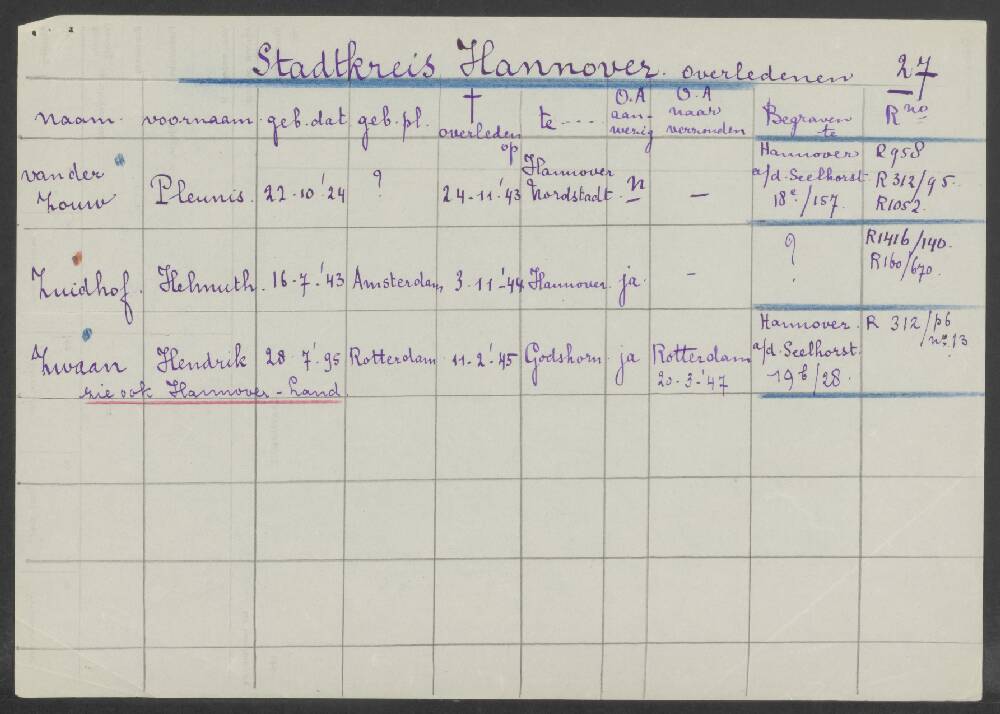 Stadtkreis Hannover. overledenen 27
naam. voornaam. geb.dat geb.pl. † overleden op te .... O.A aanwezig O.A naar verzonden Begraven te R no
van der Zouw Pleunis. 22-10-'24 ? 24-11-'43 Hannover Nordstadt n — Hannover a/d. Seelhorst 18e/157. R958 R312/95. R1052.
Zuidhof. Helmuth. 16-7-'43 Amsterdam 3-11-'44 Hannover. ja. — ? R1416/140. R160/670.
Zwaan Hendrik 28-7-'95 Rotterdam 11-2-'45 Godshorn ja Rotterdam 20-3-'47 Hannover. a/d. Seelhorst. 19b/28. R 312/p6 no. 13
zie ook Hannover - Land.